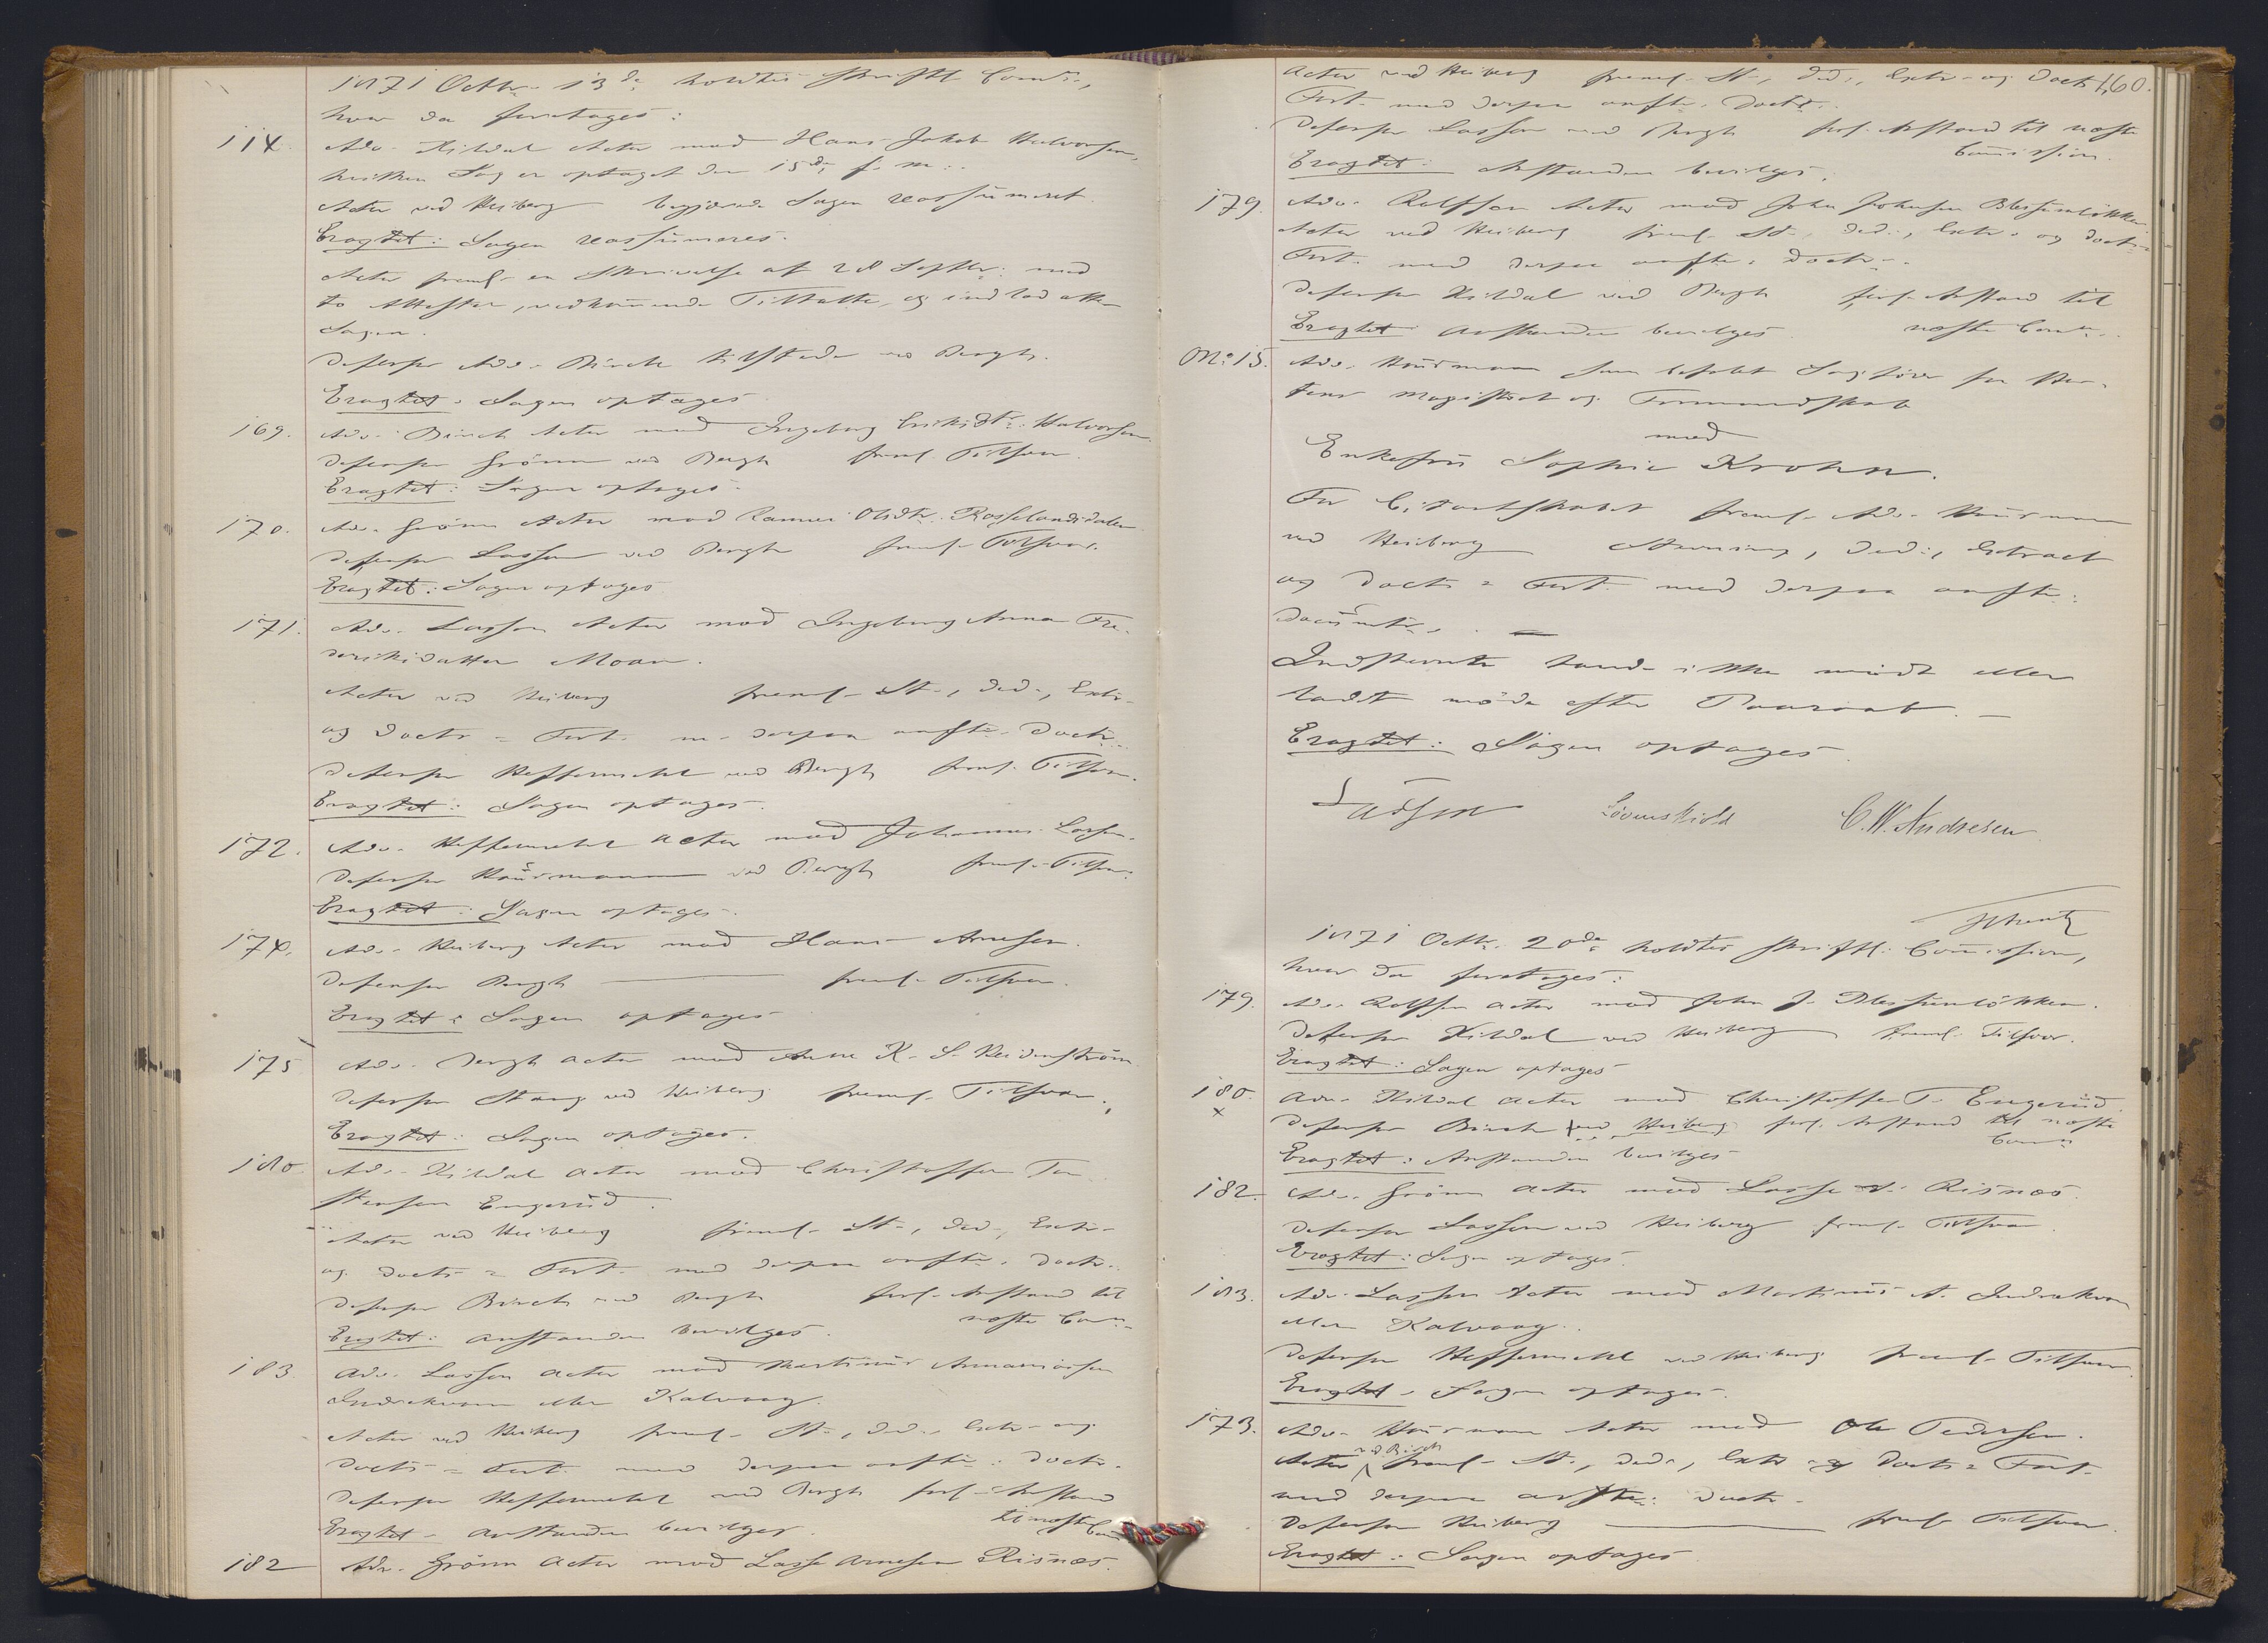 1871 Octbr. 13de holdtes skriftl. Comn.,
hvor da foretoges:
114. Adv. Hildal Actor mod Hans Jakob Halvorsen,
hvilken Sag er optaget den 15de f. M.
Actor ved Heiberg begjærede Sagen reassumeret.
Eragtet: Sagen reassumeres.
Actor freml. en Skrivelse af 28 Septbr. med
to Attester, vedkommende Tiltalte, og indlod atter
Sagen.
Defensor Adv. Birch tilstede ved Bergh.
Eragtet: Sagen optages.
169. Adv. Birch Actor mod Ingeborg Eriksdtr. Halvorsen.
Defensor Grönn ved Bergh freml. Tilsvar.
Eragtet: Sagen optages.
170. Adv. Grönn Actor mod Olsdtr. Rosselandsdalen
Defensor Lassen ved Bergh freml. Tilsvar.
Eragtet: Sagen optages
171. Adv. Lassen Actor mod Ingeborg Anna Fre-
deriksdatter Moan.
Actor ved Heiberg freml. St., Ded., Extr.
og Docts = Fort. m. derpaa anfte. Doctr.
Defensor Heffermehl ved Bergh freml. Tilsvar.
Eragtet: Sagen optages.
172. Adv. Heffermehl Actor mod Johannes Larsen.
Defensor ved Bergh freml. Tilsvar.
Eragtet: Sagen optages.
174. Adv. Heiberg Actor mod Hans Arnesen.
Defensor Bergh freml. Tilsvar.
Eragtet: Sagen optages
175 Adv. Bergh Actor mod Anne K. S. Heidenström
Defensor Stang ved Heiberg freml. Tilsvar.
Eragtet: Sagen optages.
180. Adv. Hildal Actor mod Christoffer Tor-
stensen Engerüd.
Actor ved Heiberg freml. St., Ded., Extr.
og Docts = Fort. med derpaa anfte. Doctr.
Defensor Birch ved Bergh forl. Anstand til
næste Comn.
Eragtet: Anstanden bevilges.
183. Adv. Lassen Actor mod Martinüs Annaniassen
Indrekvam eller Kalvaag.
Actor ved Heiberg freml. St., Ded., Extr. og
Docts = Fort. med derpaa anfte. Doctr.
Defensor Heffermehl ved Bergh forl. Anstand
til næste Comn
Eragtet. Anstanden bevilges.
182 Adv. Grönn Actor mod Lasse Arnesen Risnæs.
160.
Actor ved Heiberg freml. St., Ded., Extr. og Docts
Fort. med derpaa anfte. Doctr.
Defensor Lassen ved Bergh forl. Anstand til næste
Comission.
Eragtet: Anstanden bevilges.
179. Adv. Rolfsen Actor mod John Johnsen Blessumlökken
Actor ved Heiberg freml. St., Ded., Extr. og Docts =
Fort. med derpaa anfte. Doctr.
Defensor Hildal ved Bergh forl. Anstand til
næste Comn.
Eragtet Anstanden bevilges
No. 15. Adv. som befalet Sagförer for
Magistrat og Formandskab
mod
Enkefrü Sophie Krohn.
For Citantskabet freml. Adv.
ved Heiberg Stævning, Ded., Extract
og Docts = Fort. med derpaa anfte.
Documtr.
Indstevnte havde ikke mödt eller
ladt möde efter Paaraab.
Eragtet: Sagen optages.
Lassen Lövenskiold C. W. Andresen
1871 Octbr. 20de holdtes skriftl. Comission,
hvor da foretoges:
179. Adv. Rolfsen Actor mod John J. Blessumlökken.
Defensor Hildal ved Heiberg freml. Tilsvar.
Eragtet: Sagen optages
180. x Adv. Hildal Actor mod Christoffer T. Engerüd
Defensor Birch ved Heiberg forl. Anstand til næste
Comn
Eragtet: Anstanden bevilges
182. Adv. Grönn Actor mod Lasse A. Risnæs.
Defensor Lassen ved Heiberg freml. Tilsvar
Eragtet: Sagen optages.
183. Adv. Lassen Actor mod Martinüs A. Indrekvam
eller Kalvaag.
Defensor Heffermehl ved Heiberg freml. Tilsvar.
Eragtet. Sagen optages.
173. Adv. Actor mod Ole Pedersen.
Actor ved Birch freml. St., Ded., Extr og Docts = Fort.
med derpaa anfte. Doctr.
Defensor Heiberg freml. Tilsvar.
Eragtet: Sagen optages